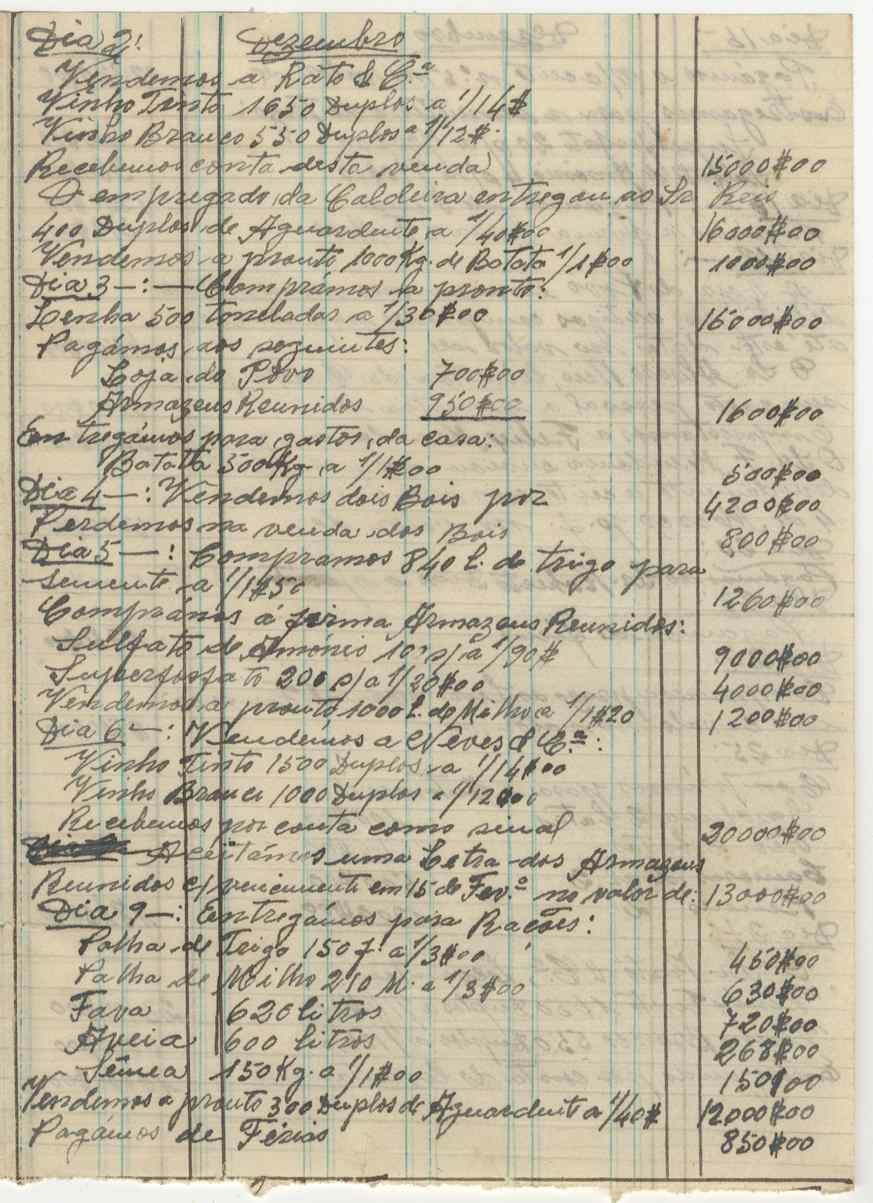 Dia 2: Dezembro
Vendemos a Rato & C.ª
Vinho Tinto 1650 Duplos a 1/14$
Vinho Branco 550 Duplos a 1/12$
Recebemos conta desta venda 15000$00
O empregado da Caldeira entregou ao Sr Reis
400 Duplos de Aguardente a 1/40$00 16000$00
Vendemos a pronto 1000 Kg. de Batata 1/1$00 1000$00
Dia 3—:— Comprámos a pronto:
Lenha 500 toneladas a 1/30$00 15000$00
Pagámos aos seguintes:
Loja do Povo 700$00
Armazens Reunidos 950$00 1600$00
Entregámos para gastos da casa:
Batata 500 Kg. a 1/1$00 500$00
Dia 4—: Vendemos dois Bois por 4200$00
Perdemos na venda dos Bois 800$00
Dia 5—: Compramos 840 l. de trigo para
semente a 1/1$50 1260$00
Comprámos á firma Armazens Reunidos:
Sulfato de Amónio 10 s/ a 1/90$ 9000$00
Superfosfato 200 s/ a 1/20$00 4000$00
Vendemos a pronto 1000 l. de Milho a 1/1$20 1200$00
Dia 6—: Vendemos a Neves & C.ª:
Vinho Tinto 1500 Duplos a 1/14$00
Vinho Branco 1000 Duplos a 1/12$00
Recebemos por conta como sinal 20000$00
Aceitámos uma Letra dos Armazens
Reunidos c/ vencimento em 15 de Fev.º no valor de: 13000$00
Dia 9—: Entregámos para Rações:
Palha de Trigo 150 f. a 1/3$00 450$00
Palha de Milho 210 M. a 1/3$00 630$00
Fava 620 litros 720$00
Aveia 600 litros 268$00
Sêmea 150 Kg. a 1/1$00 150$00
Vendemos a pronto 300 Duplos de Aguardente a 1/40$ 12000$00
Pagamos de Férias 850$00